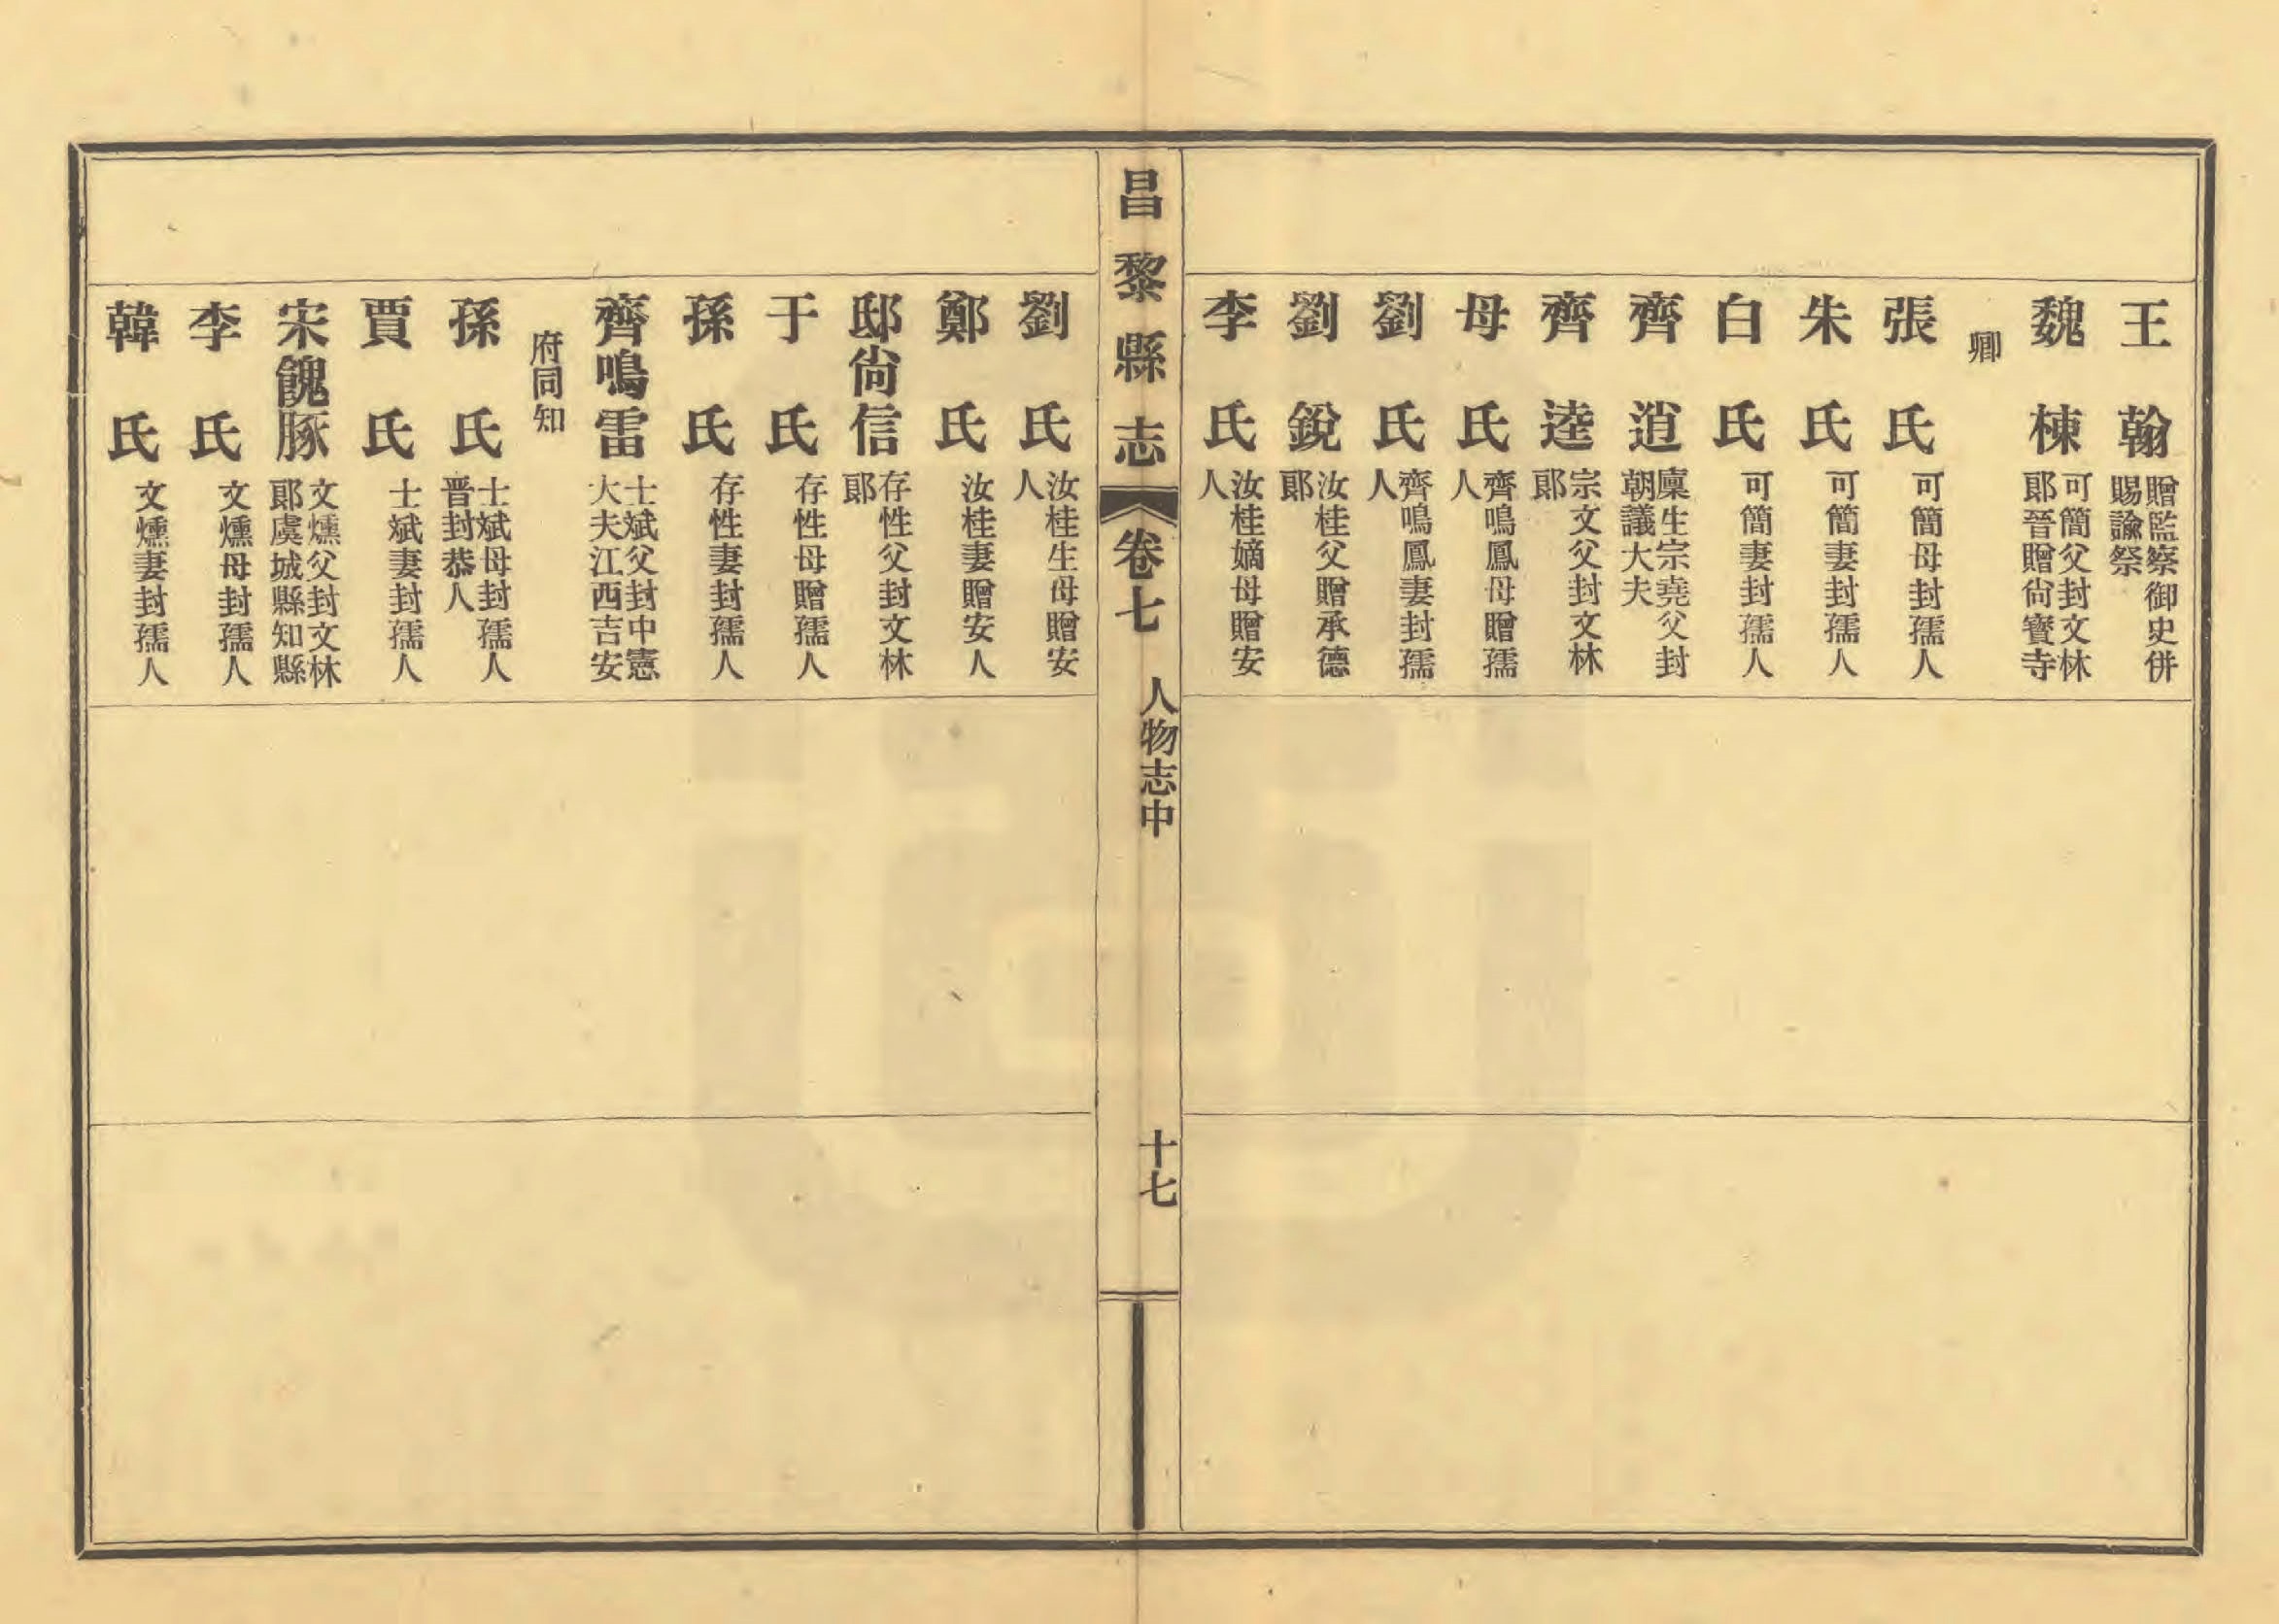 王翰 贈監察御史併賜諭祭
魏棟 可簡父封文林郞晉贈尙寶寺
卿
張氏 可簡母封孺人
朱氏 可簡妻封孺人
白氏 可簡妻封孺人
齊逍 廩生宗堯父封朝議大夫
齊逵 宗文父封文林郞
母氏 齊鳴鳳母贈孺人
劉氏 齊鳴鳳妻封孺人
劉銳 汝桂父贈承德郞
李氏 汝桂嫡母贈安人
昌黎縣志 卷七 人物志中 十七
劉氏 汝桂生母贈安人
鄭氏 汝桂妻贈安人
邸尙信 存性父封文林郞
于氏 存性母贈孺人
孫氏 存性妻封孺人
齊鳴雷 士斌父封中憲大夫江西吉安
府同知
孫氏 士斌母封孺人晋封恭人
賈氏 士斌妻封孺人
宋餽豚 文燻父封文林郞虞城縣知縣
李氏 文燻母封孺人
韓氏 文燻妻封孺人